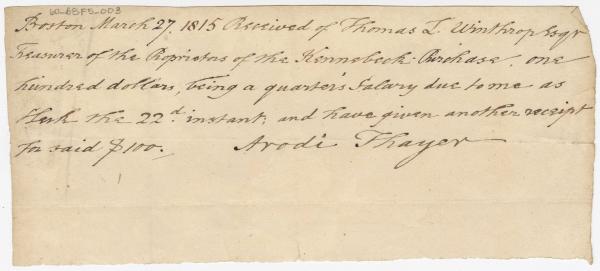 60-B8F5-003
Boston March 27, 1815 Received of Thomas L Winthrop Esqr
Treasurer of the Proprietors of the Kennebeck Purchase, one
hundred dollars, being a quarter's Salary due to me as
Clerk the 22d instant, and have given another receipt
for said $100.
Arodi Thayer